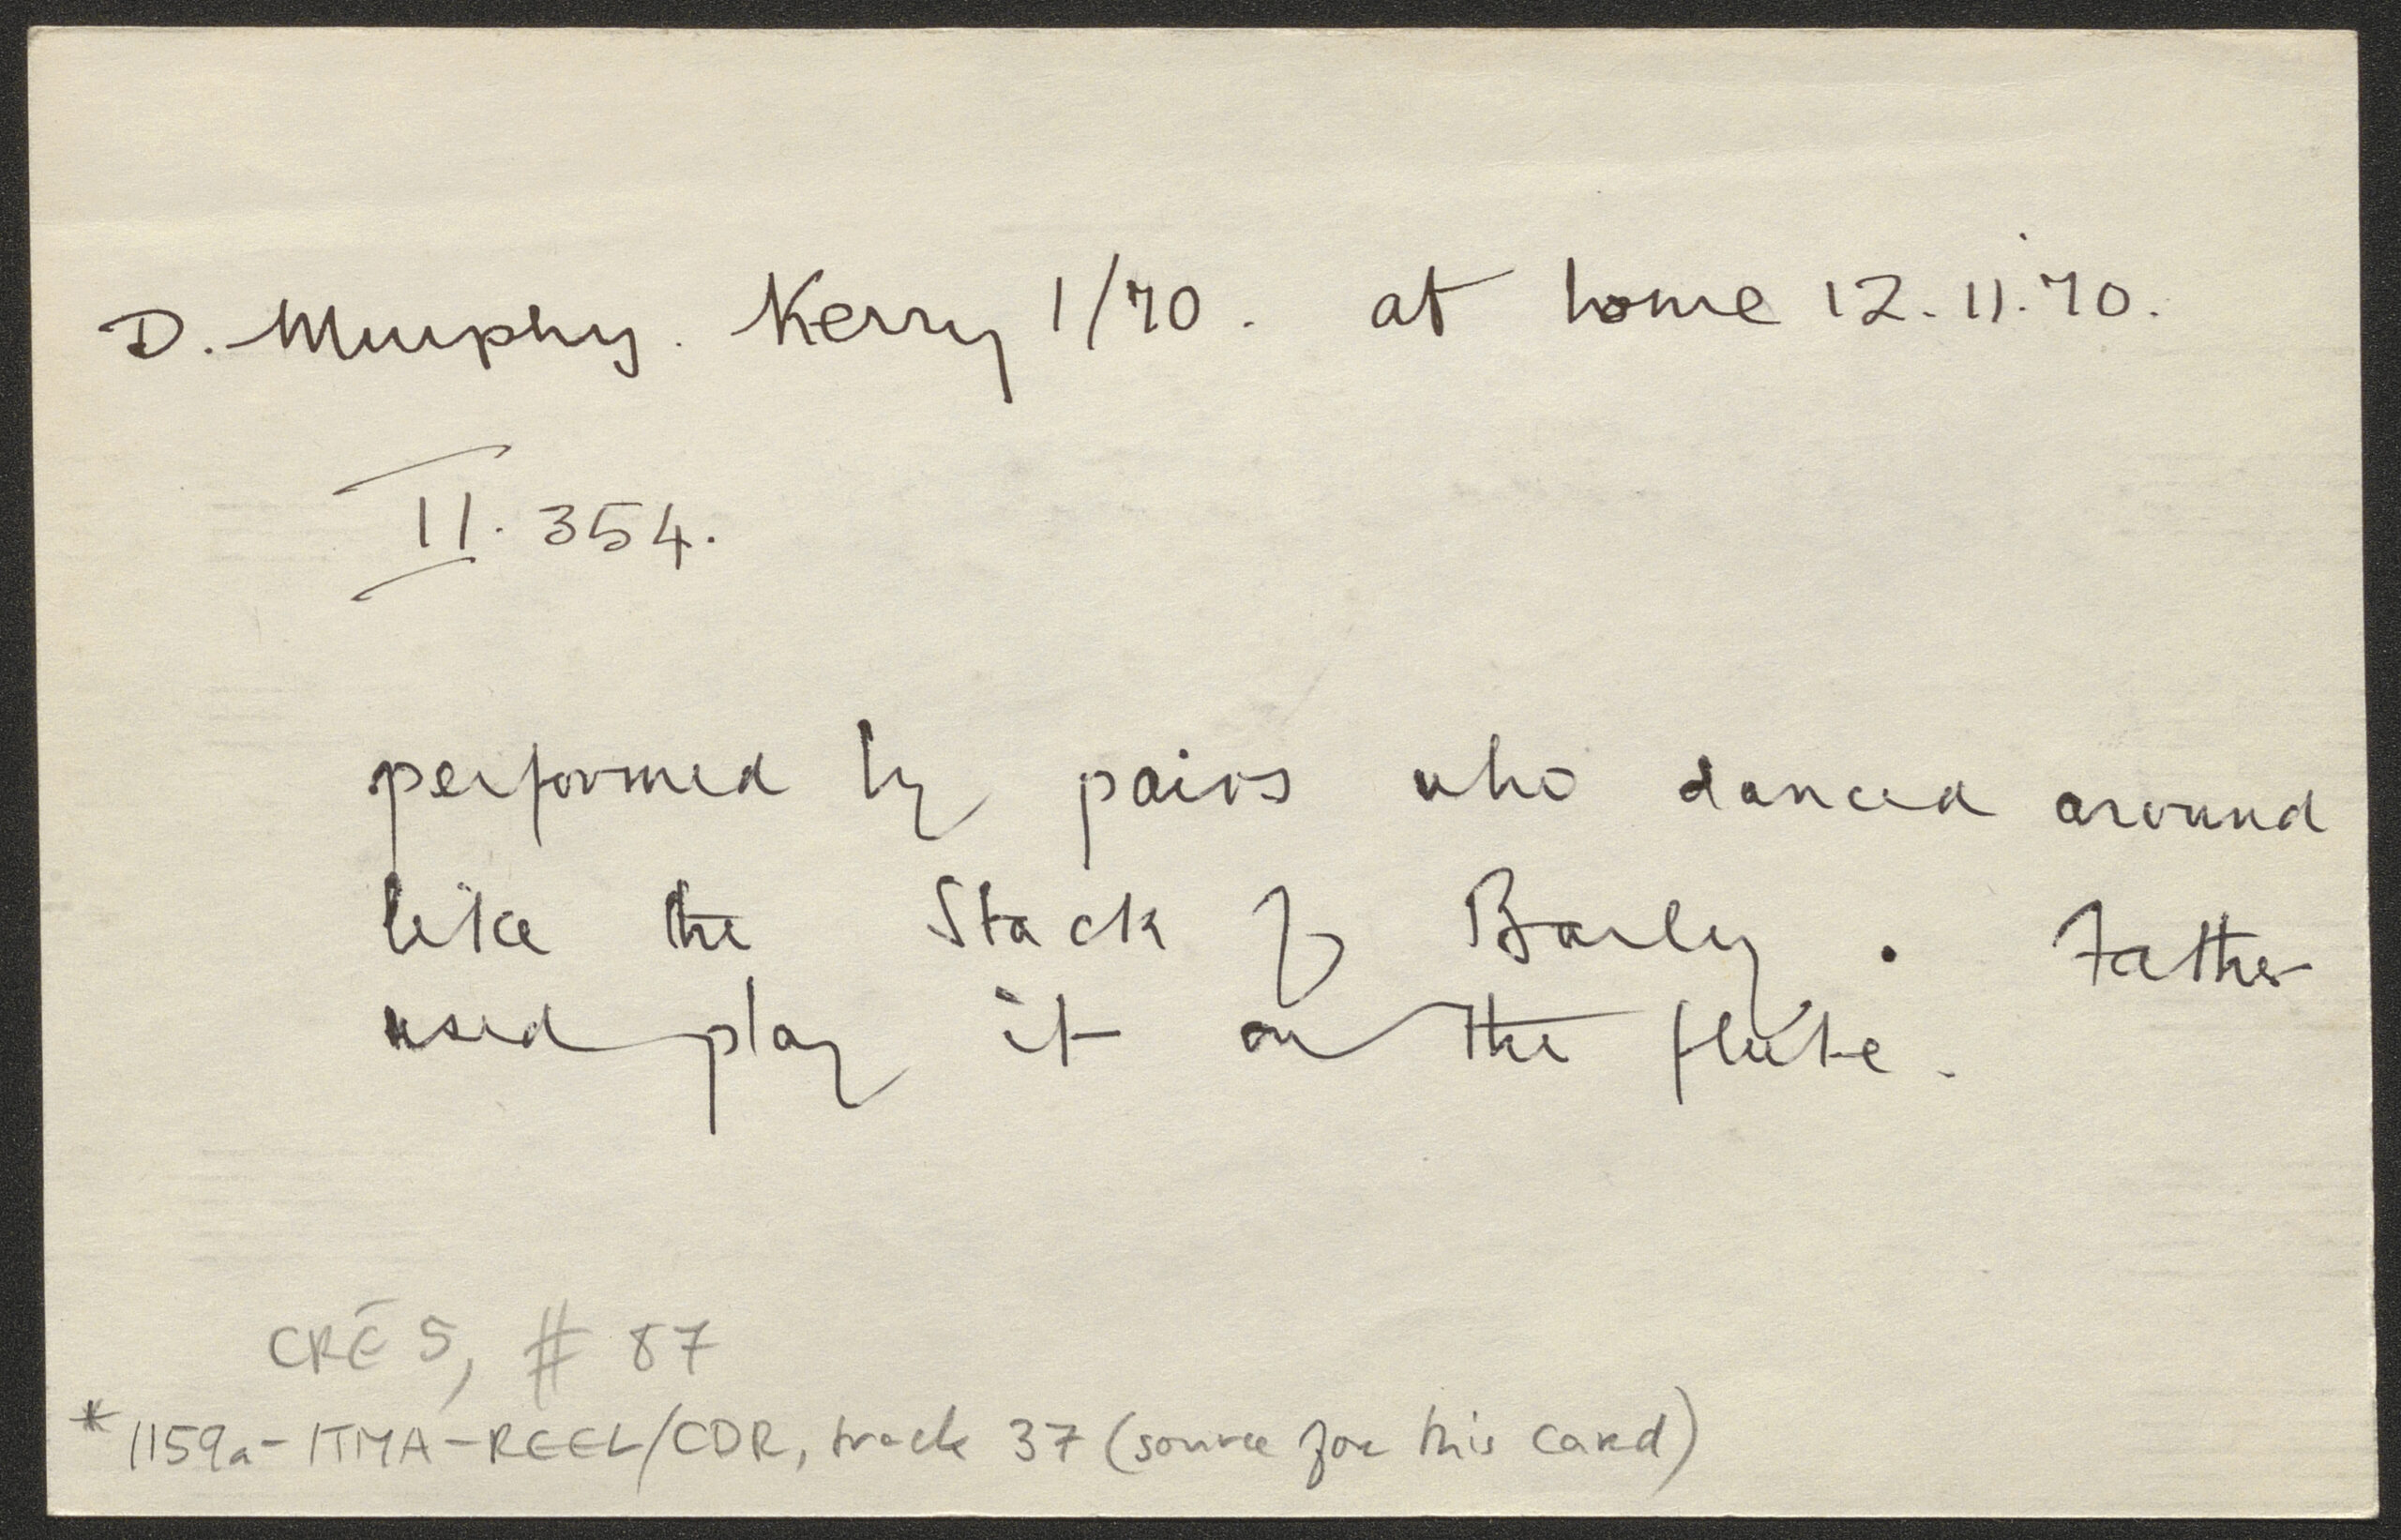 D. Murphy. Kerry 1/70. at home 12.11.70.
II. 354.
performed by pairs who danced around
like the Stack of Barley. Father
used play it on the flute.
CRÉ 5, # 87
* 1159a-ITMA-REEL/CDR, track 37 (source for this card)